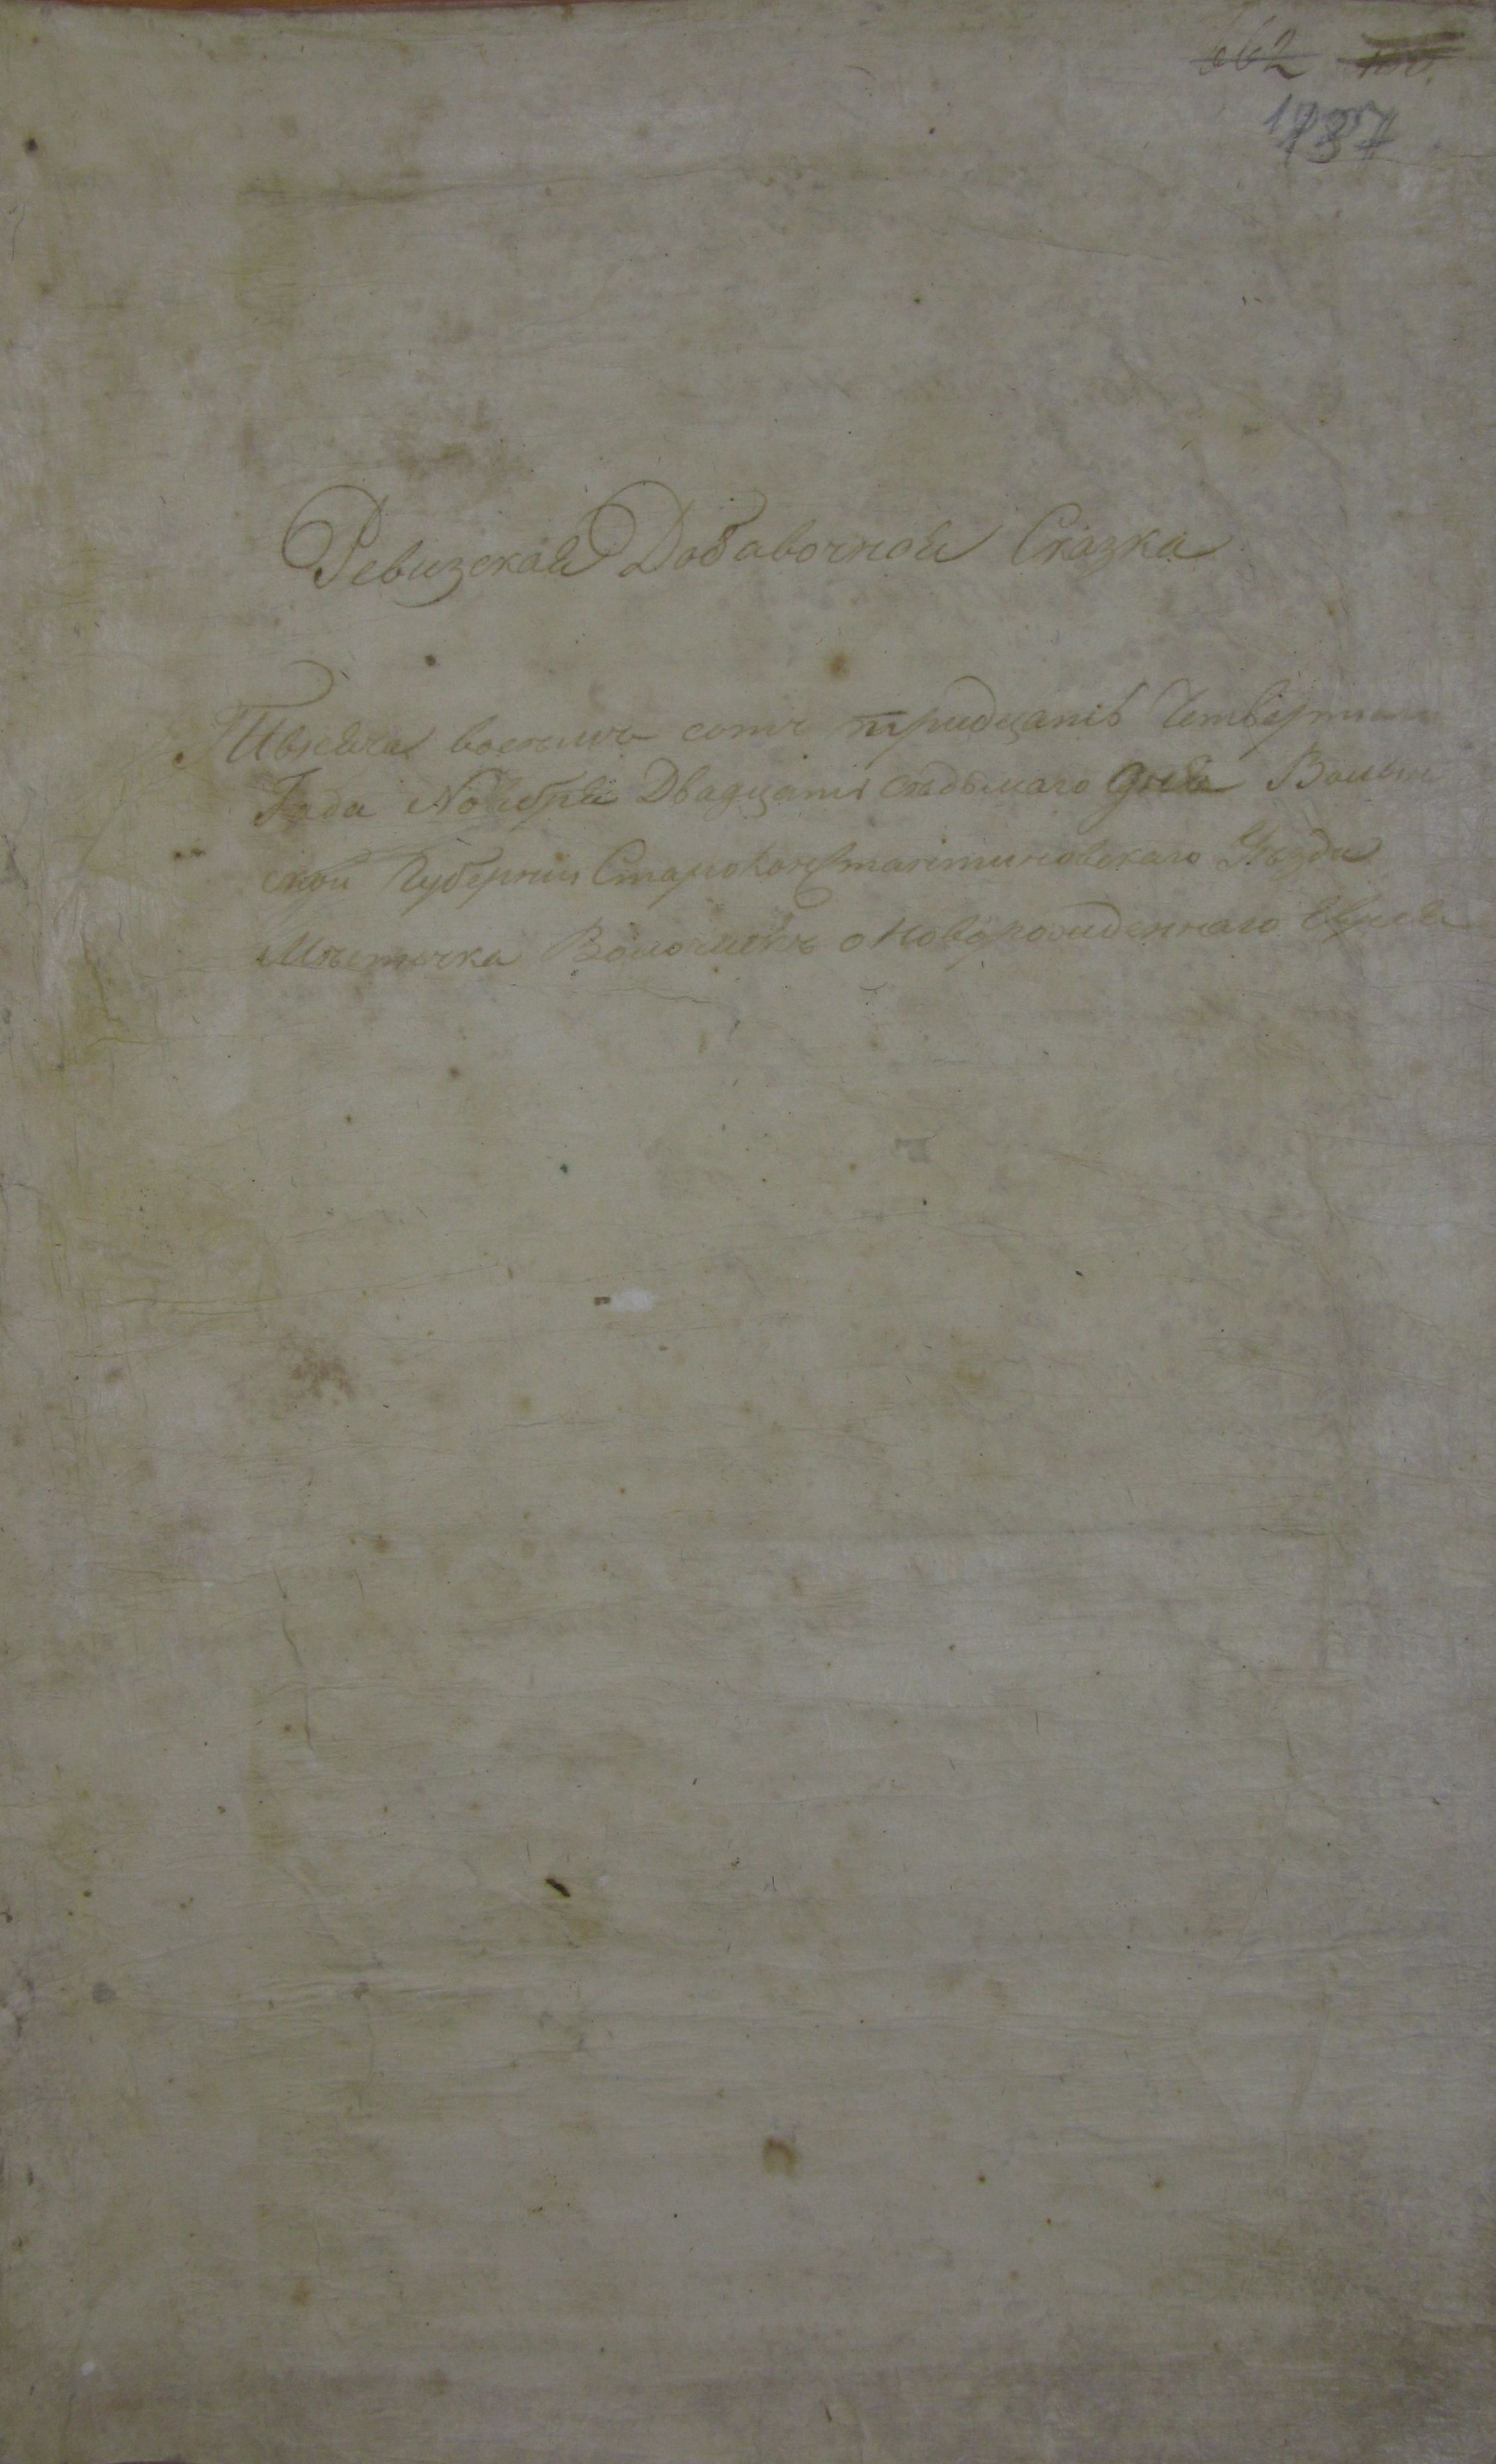 662
1837
Ревизская Добавочной Сказка
Тысяча восемь сотъ тридцать Четвертаго
Года Ноября Двадцать седьмаго дня Волын
ской Губернии Староконстантиновского Уезда
Мѣстечка Волочискъ о Новорожденнаго